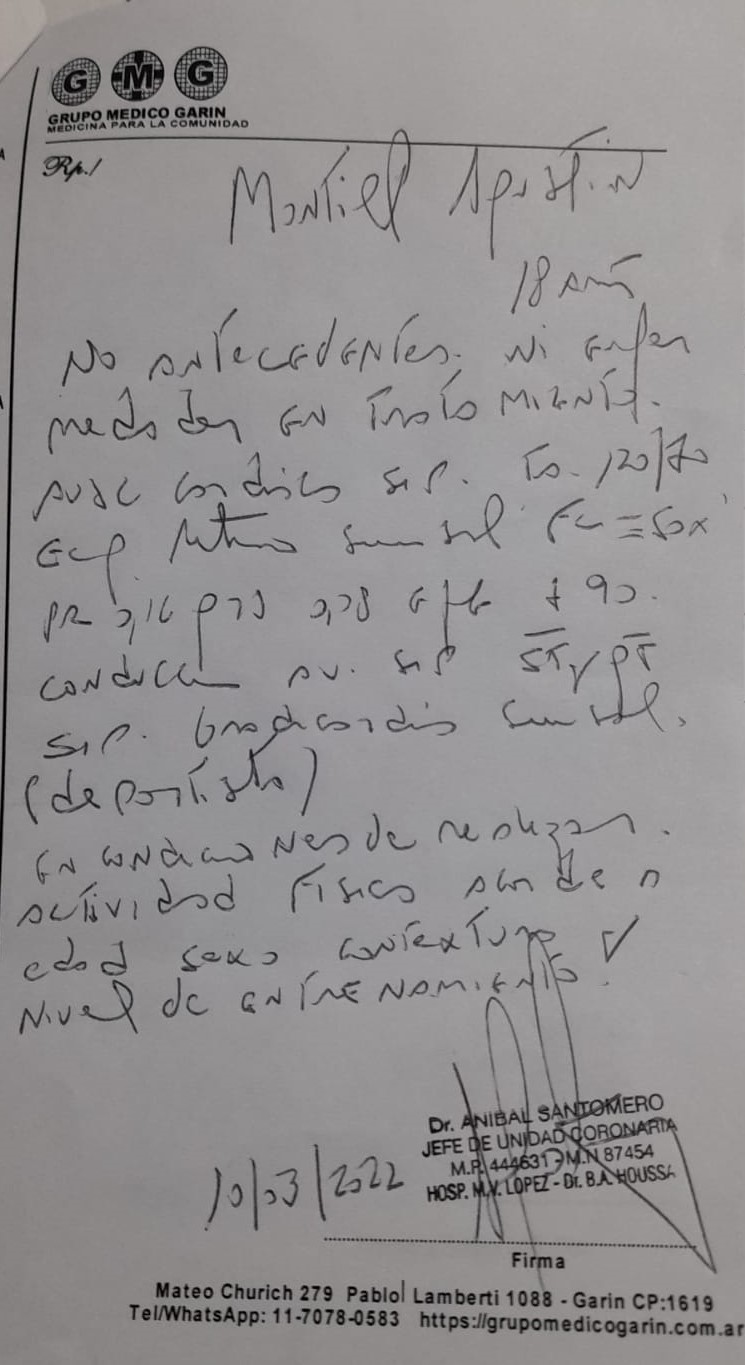 G M G
GRUPO MEDICO GARIN
MEDICINA PARA LA COMUNIDAD
Rp./
Montiel Agustin
18 años
No antecedentes. Ni enfer
medades en tratamiento.
ausc cardiaca s.p. Ta. 120/70
Ecg. Ritmo sinusal Fc = 50x'
PR 0,16 0,08 + 90.
conducción AV. s/p ST y
s.p. bradicardia sinusal.
(deportista)
En condiciones de realizar.
actividad fisica acorde a
edad sexo contextura y
Nivel de entrenamiento.
Dr. ANIBAL SANTOMERO
JEFE DE UNIDAD CORONARIA
M.P. 444631 - M.N 87454
HOSP. M.V. LOPEZ - Dr. B.A. HOUSSA
10/03/2022
Firma
Mateo Churich 279 Pablol Lamberti 1088 - Garin CP:1619
Tel/WhatsApp: 11-7078-0583 https://grupomedicogarin.com.ar